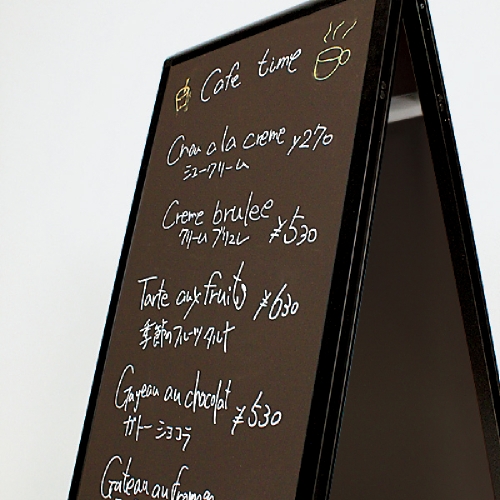 Cafe time
Chou a la creme ¥270
シュークリーム
Creme brulee ¥530
クリームブリュレ
Tarte aux fruits ¥630
季節のフルーツタルト
Gateau au chocolat ¥530
ガトーショコラ
Gateau au fromage